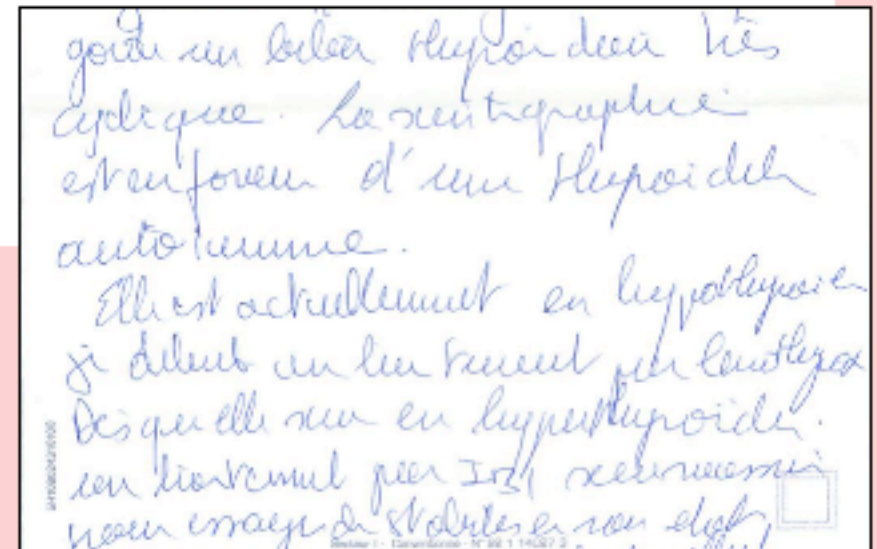 un bilan thyroïdien très
cyclique. La scintigraphie
est en faveur d'une thyroïdite
autoimmune.
Elle est actuellement en hypothyroïdie
je débute un traitement par Levothyrox
Dès qu'elle sera en hyperthyroïdie.
un traitement par I131 sera nécessaire
pour essayer de stabiliser son état